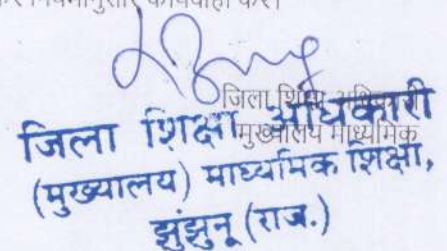 कर नियमानुसार कार्यवाही करें।
जिला शिक्षा अधिकारी
मुख्यालय माध्यमिक
जिला शिक्षा अधिकारी
(मुख्यालय) माध्यमिक शिक्षा,
झुंझुनू (राज.)